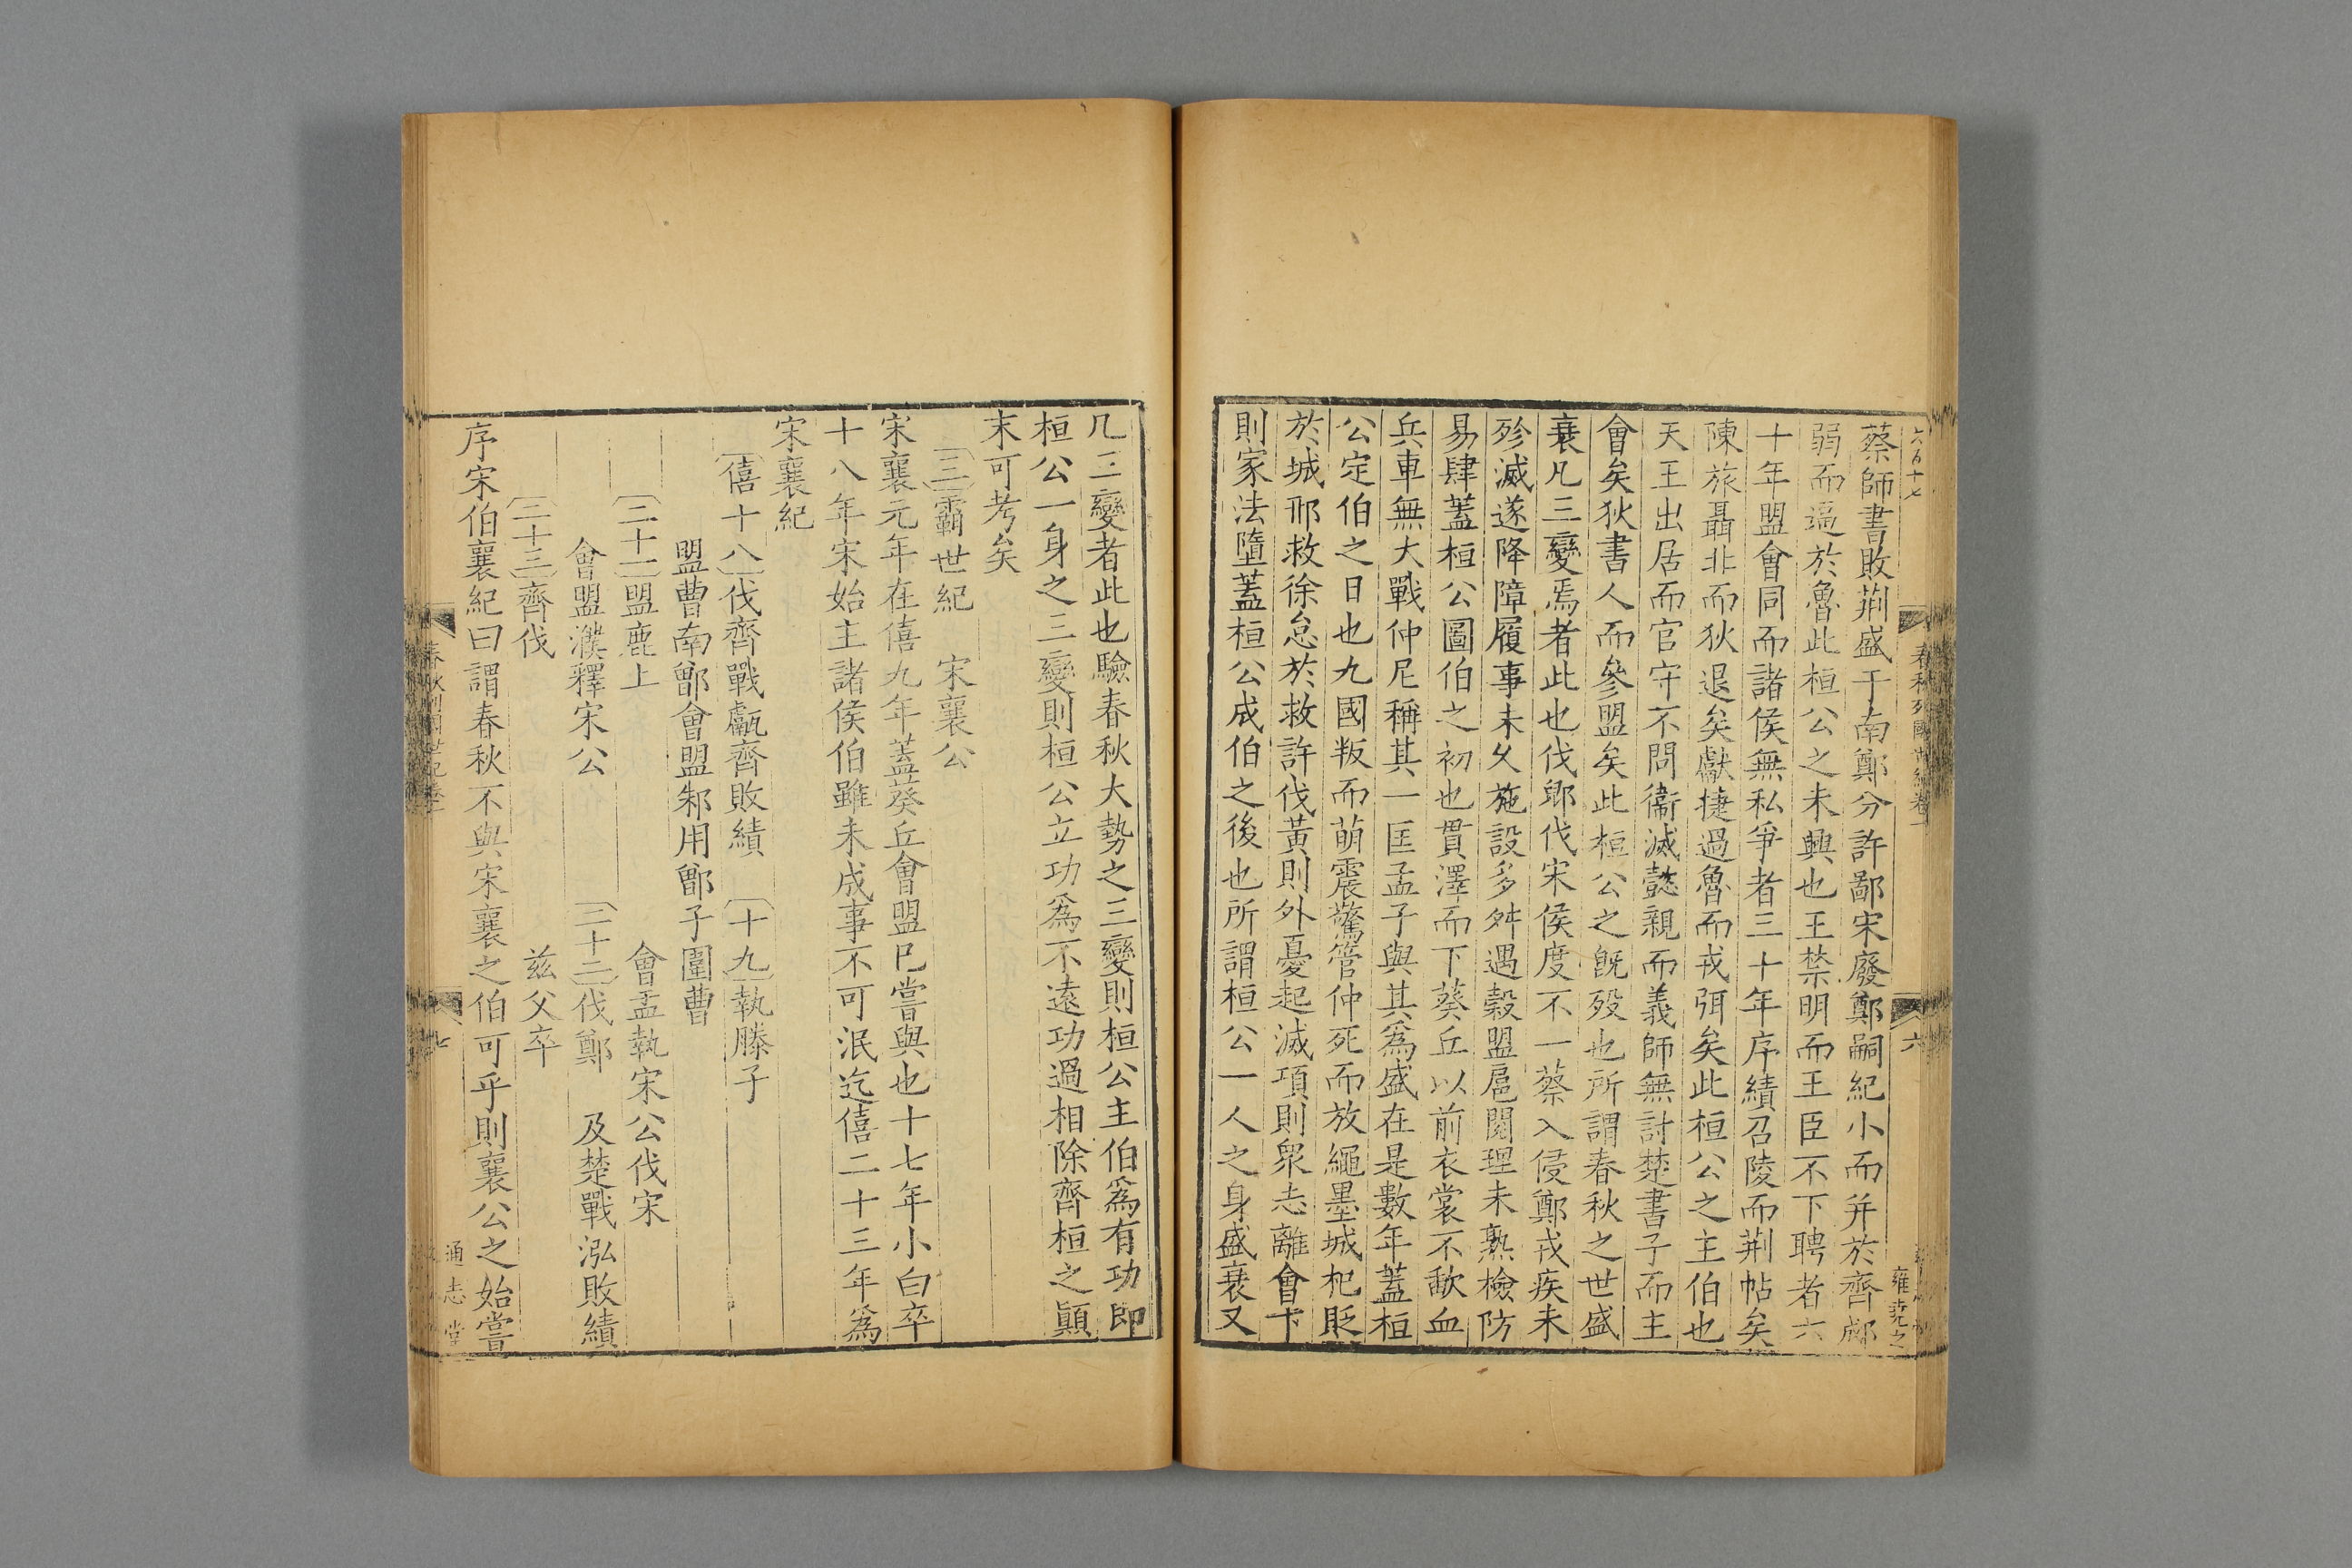 六百十七
蔡師書敗荆盛于南鄭分許鄙宋廢鄭嗣紀小而并於齊郕
弱而逼於魯此桓公之未興也王禁明而王臣不下聘者六
十年盟會同而諸侯無私爭者三十年序績召陵而荆帖矣
陳旅聶非而狄退矣獻捷過魯而戎弭矣此桓公之主伯也
天王出居而官守不問衞滅懿親而義師無討楚書子而主
會矣狄書人而參盟矣此桓公之旣歿也所謂春秋之世盛
衰凡三變焉者此也伐郎伐宋侯度不一蔡入侵鄭戎疾未
殄滅遂降障履事未久施設多舛遇穀盟扈閱理未熟檢防
易肆蓋桓公圖伯之初也貫澤而下葵丘以前衣裳不歃血
兵車無大戰仲尼稱其一匡孟子與其爲盛在是數年蓋桓
公定伯之日也九國叛而萌震驚管仲死而放繩墨城杞貶
於城邢救徐怠於救許伐黃則外憂起滅項則衆志離會卞
則家法墮蓋桓公成伯之後也所謂桓公一人之身盛衰又
六
雍堯之
凡三變者此也驗春秋大勢之三變則桓公主伯爲有功卽
桓公一身之三變則桓公立功爲不遠功過相除齊桓之顛
末可考矣
三霸世紀 宋襄公
宋襄元年在僖九年蓋葵丘會盟巳嘗與也十七年小白卒
十八年宋始主諸侯伯雖未成事不可泯迄僖二十三年爲
宋襄紀
僖十八伐齊戰甗齊敗績 十九執滕子
盟曹南鄫會盟邾用鄫子圍曹
二十一盟鹿上 會盂執宋公伐宋
會盟濮釋宋公 二十二伐鄭 及楚戰泓敗績
二十三齊伐 茲父卒
序宋伯襄紀曰謂春秋不與宋襄之伯可乎則襄公之始嘗
七
通志堂